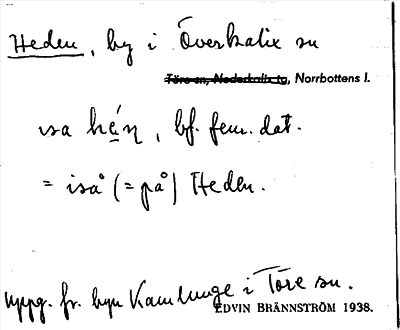 Heden, by i Överkalix sn
Töre sn, Nederkalix tg, Norrbottens l.
isa hę́ņ, bf. fem. dat.
= iså (= på) Heden.
uppg. fr. byn Kamlunge i Töre sn.
EDVIN BRÄNNSTRÖM 1938.